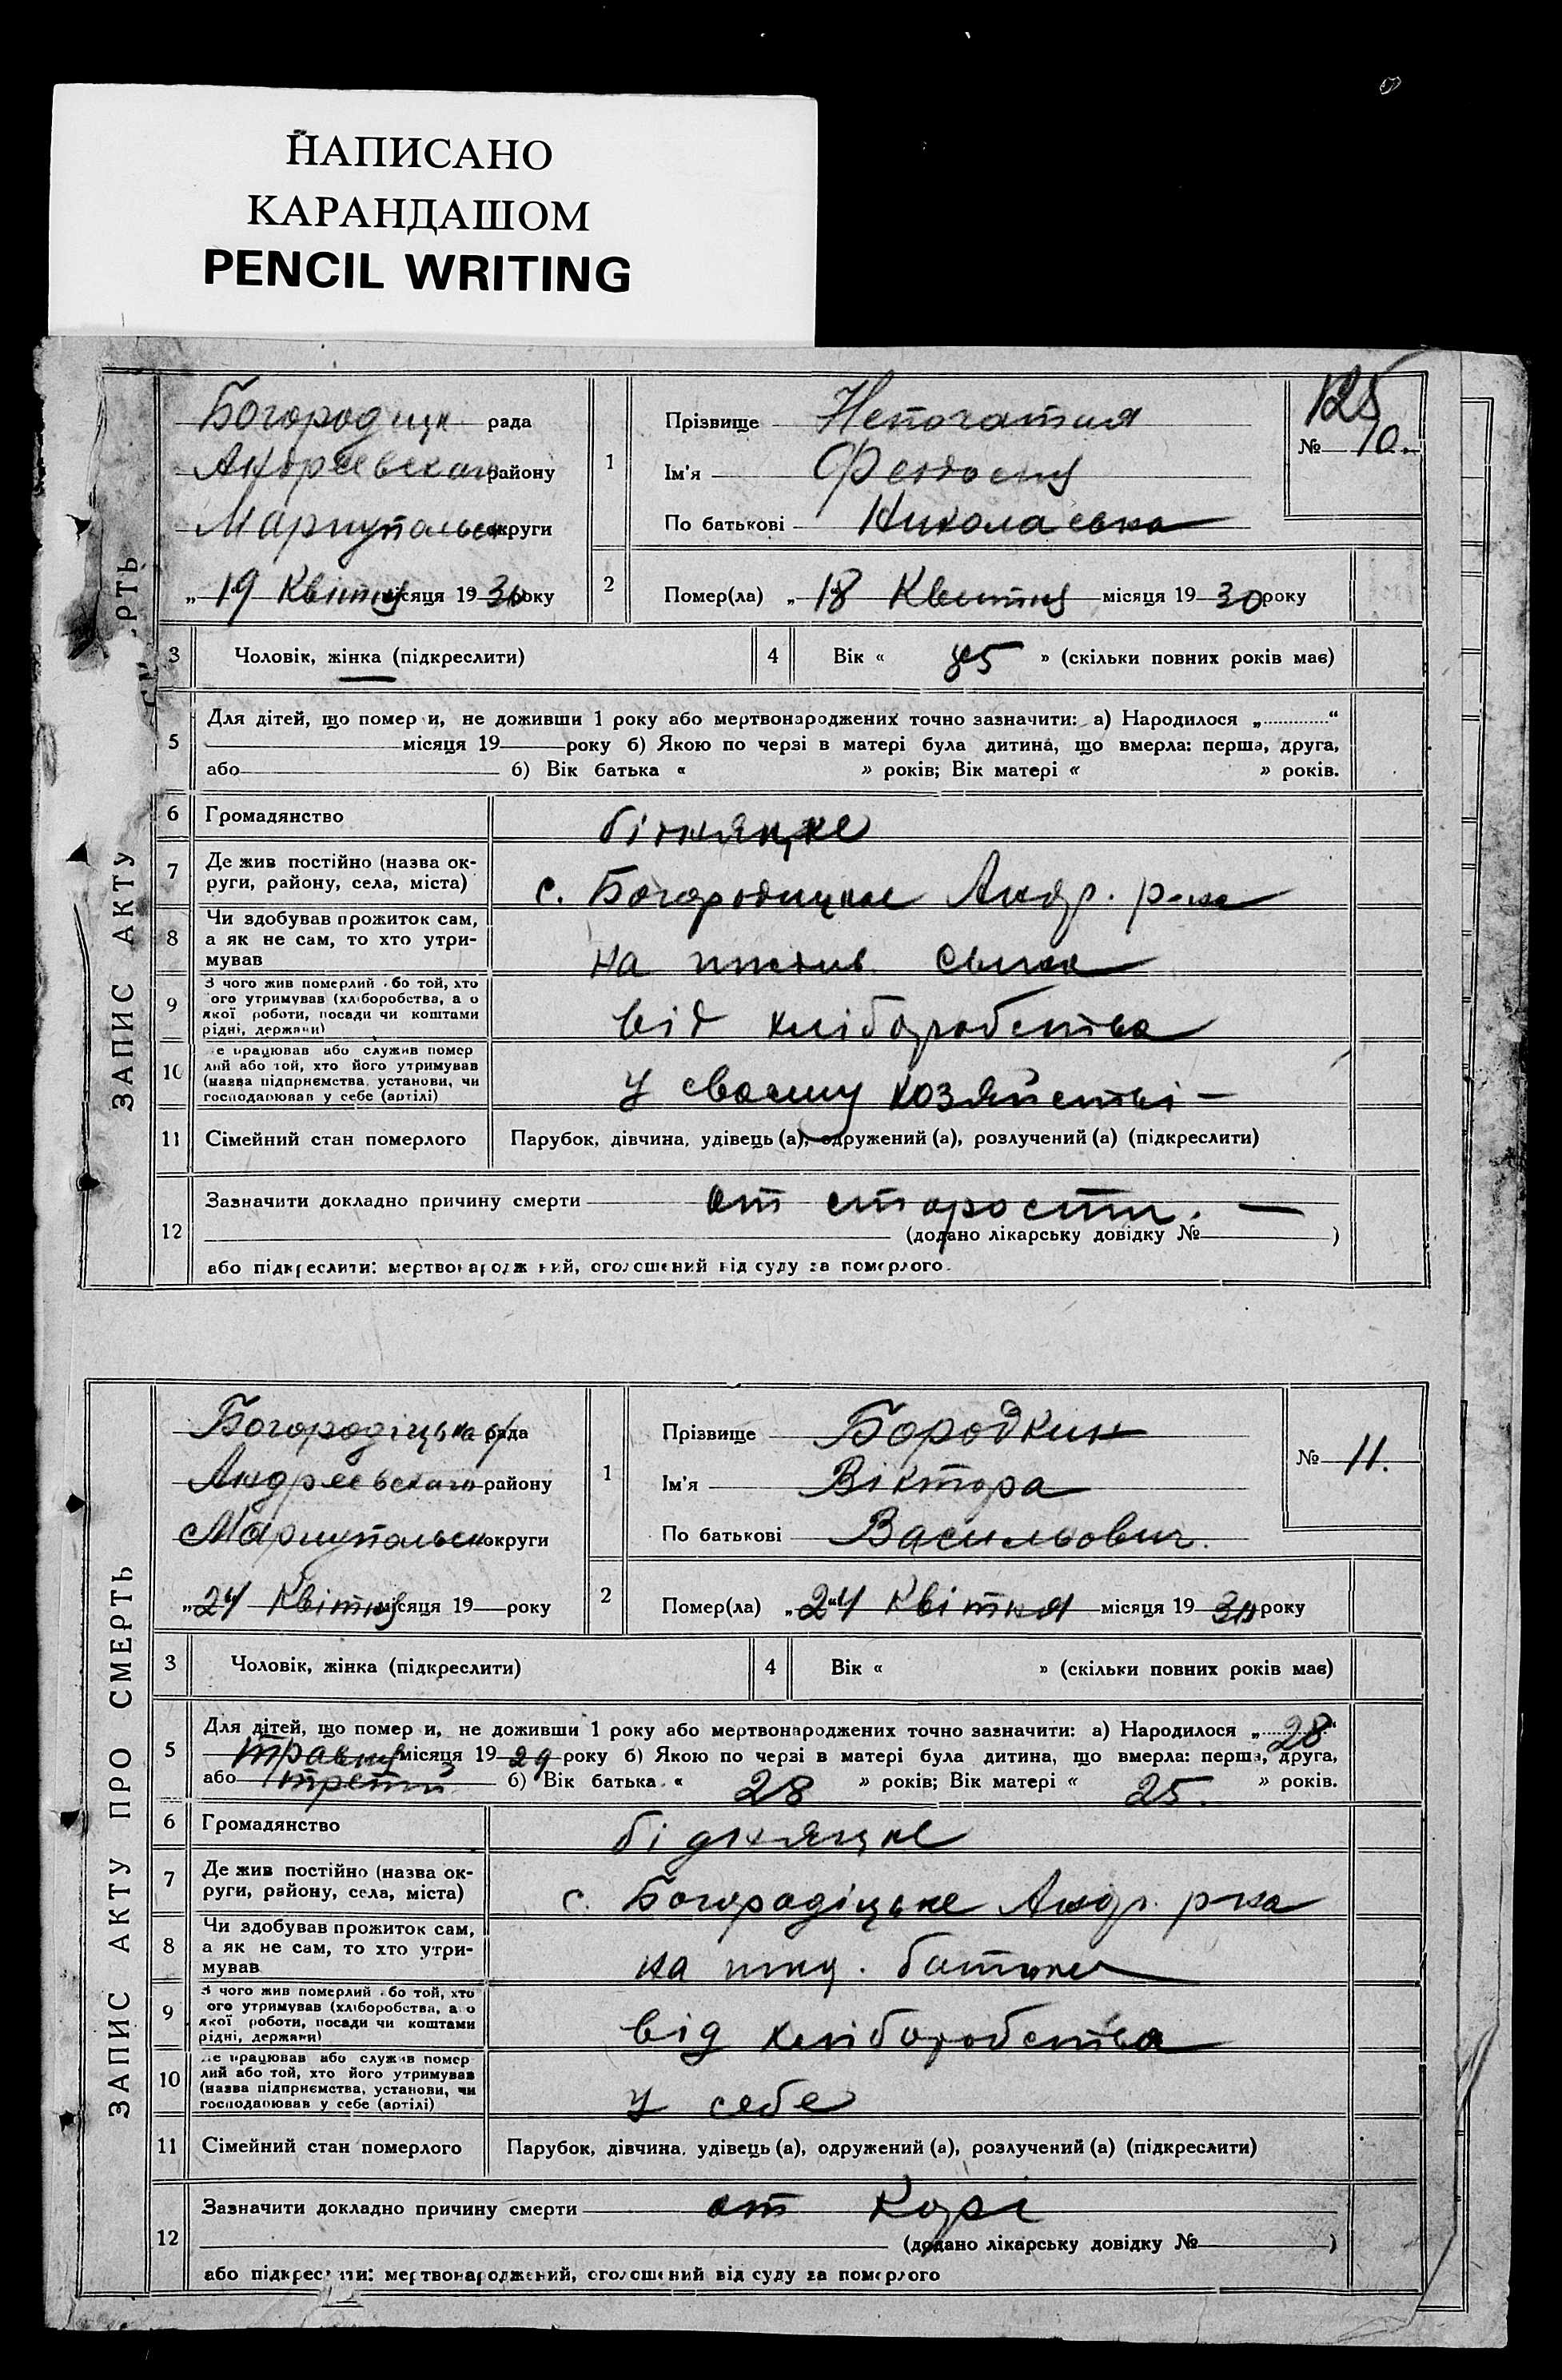 НАПИСАНО
КАРАНДАШОМ
PENCIL WRITING
ЗАПИС АКТУ
125
Богородицк рада
Андреевского району
Мариупольск округи
„19 Квітня місяця 1930 року
1
Прізвище Непочатия
Ім'я Феодосия
По батькові Николаевна
№ 10.
2
Помер(ла) „18 Квитня місяця 1930 року
3 Чоловік, жінка (підкреслити)
4 Вік « 85 » (скільки повних років має)
5
Для дітей, що помер и, не доживши 1 року або мертвонароджених точно зазначити: а) Народилося „ “
місяця 19 року б) Якою по черзі в матері була дитина, що вмерла: перша, друга,
або б) Вік батька « » років; Вік матері « » років.
6 Громадянство
7 Де жив постійно (назва ок-
руги, району, села, міста)
с. Богородицкое Андр. р-на
8 Чи здобував прожиток сам,
а як не сам, то хто утри-
мував
на сина
9 З чого жив померлий бо той, хто
ого утримував (хліборобства, а о
якої роботи, посади чи коштами
рідні, держави)
від хліборобства
10 е працював або служив помер
лий або той, хто його утримував
(назва підприємства, установи, чи
господарював у себе (артілі)
у своему хозяйстві —
11 Сімейний стан померлого Парубок, дівчина, удівець (а), одружений (а), розлучений (а) (підкреслити)
12 Зазначити докладно причину смерти от старости. —
(додано лікарську довідку № )
або підкреслити: мертвонародж ний, оголошений від суду за померлого.
ЗАПИС АКТУ ПРО СМЕРТЬ
Богородіцька с/рада
Андреевскаго району
Мариупольск округи
„24 Квітня місяця 19 року
1
Прізвище Бородкин
Ім'я Віктора
По батькові Васильович.
№ 11.
2
Помер(ла) „24 Квітня місяця 1930 року
3 Чоловік, жінка (підкреслити)
4 Вік « » (скільки повних років має)
5
Для дітей, що помер и, не доживши 1 року або мертвонароджених точно зазначити: а) Народилося „28“
травня місяця 1929 року б) Якою по черзі в матері була дитина, що вмерла: перша, друга,
або третий б) Вік батька « 28 » років; Вік матері « 25. » років.
6 Громадянство бідняцке
7 Де жив постійно (назва ок-
руги, району, села, міста)
с. Богородіцьке Андр. р-на
8 Чи здобував прожиток сам,
а як не сам, то хто утри-
мував
на батька
9 З чого жив померлий бо той, хто
ого утримував (хліборобства, а о
якої роботи, посади чи коштами
рідні, держави)
від хліборобства
10 е працював або служив помер
лий або той, хто його утримував
(назва підприємства, установи, чи
господарював у себе (артілі)
у себе
11 Сімейний стан померлого Парубок, дівчина, удівець (а), одружений (а), розлучений (а) (підкреслити)
12 Зазначити докладно причину смерти от Корі
(додано лікарську довідку № )
або підкреслити: мертвонароджений, оголошений від суду за померлого